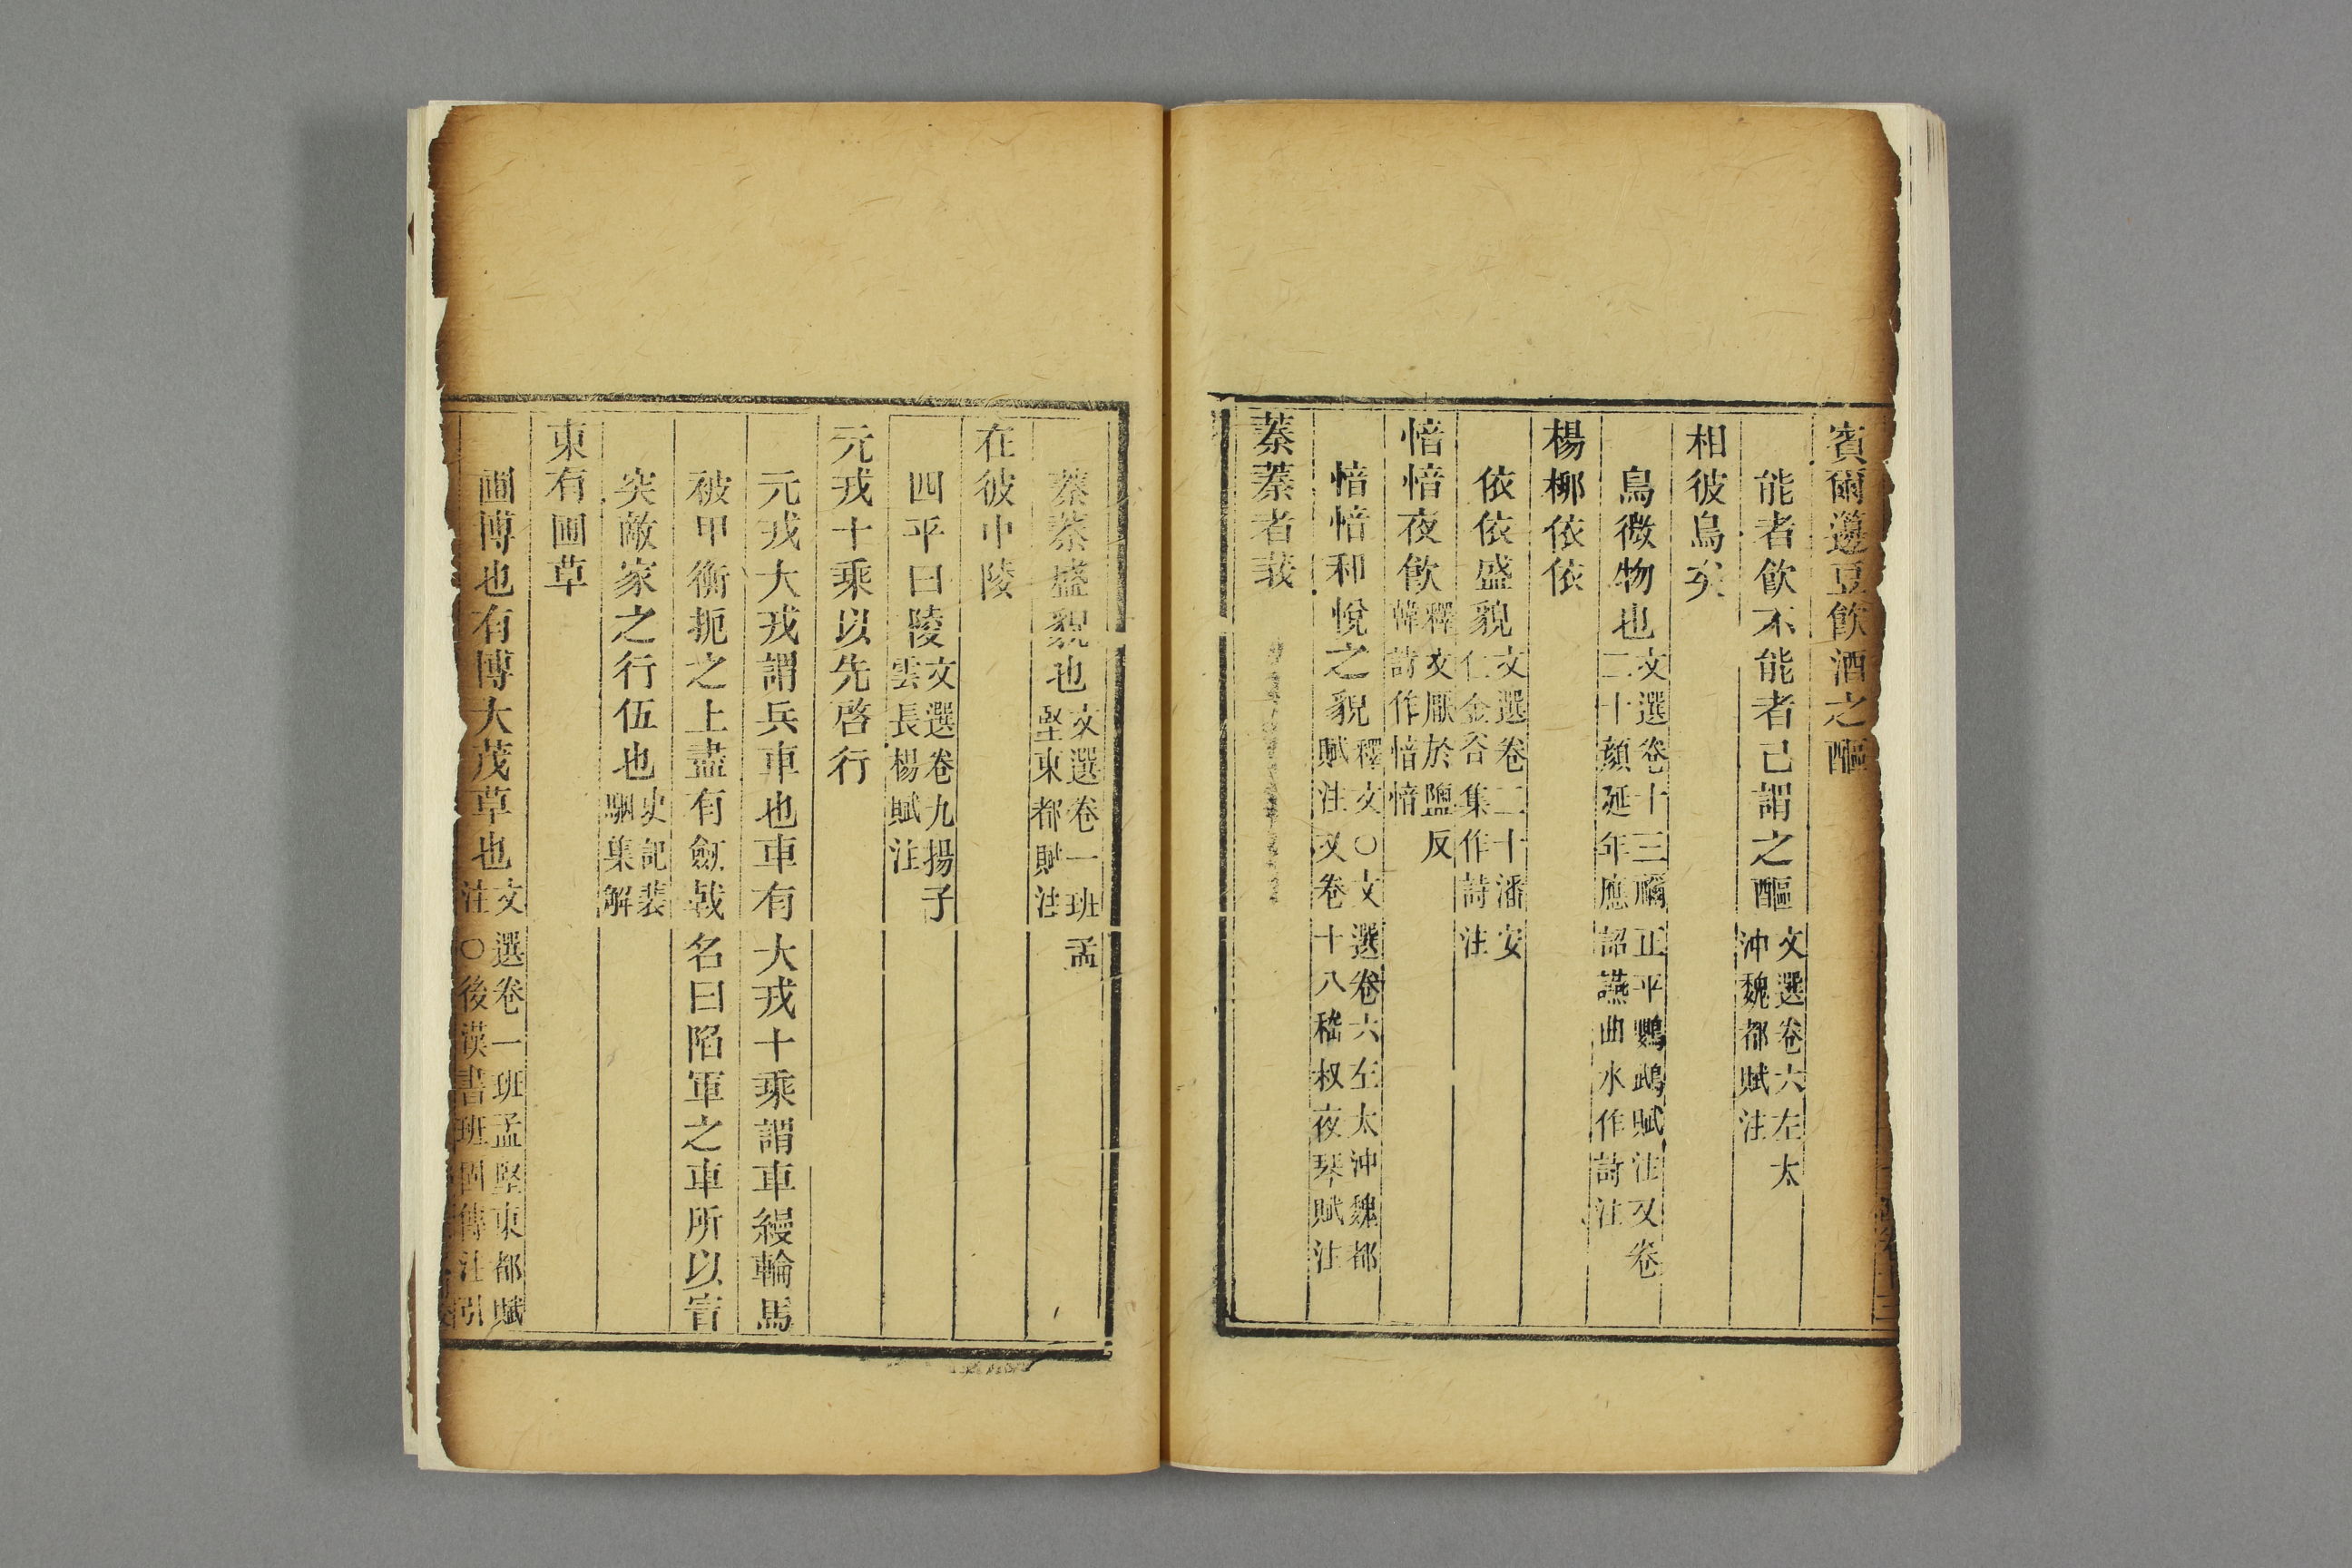 賓爾籩豆飲酒之醧
能者飲不能者已謂之醧文選卷六左太
沖魏都賦注
相彼鳥矣
鳥微物也文選卷十三禰正平鸚鵡賦注又卷
二十顏延年應詔讌曲水作詩注
楊柳依依
依依盛貌文選卷二十潘安
仁金谷集作詩注
愔愔夜飲釋文厭於鹽反
韓詩作愔愔
愔愔和悅之貌釋文○文選卷六左太沖魏都
賦注又卷十八嵇叔夜琴賦注
蓁蓁者莪
蓁蓁盛貌也文選卷一班孟
堅東都賦注
在彼中陵
四平曰陵文選卷九揚子
雲長楊賦注
元戎十乘以先啓行
元戎大戎謂兵車也車有大戎十乘謂車縵輪馬
被甲衡扼之上盡有劔戟名曰陷軍之車所以冒
突敵家之行伍也史記裴
駰集解
東有圃草
圃博也有博大茂草也文選卷一班孟堅東都賦
注○後漢書班固傳注引